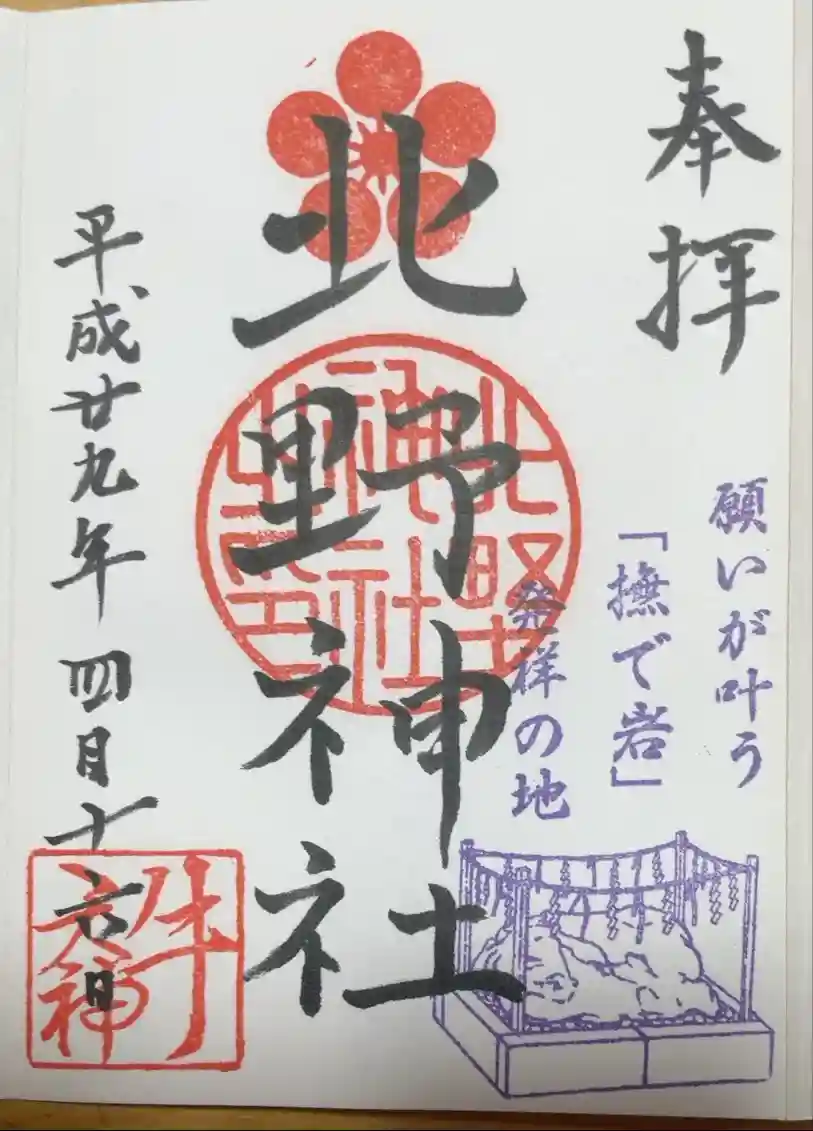 奉拝
願いが叶う
「撫で岩」
発祥の地
北野神社
北野神社
牛天神
平成廿九年四月十六日